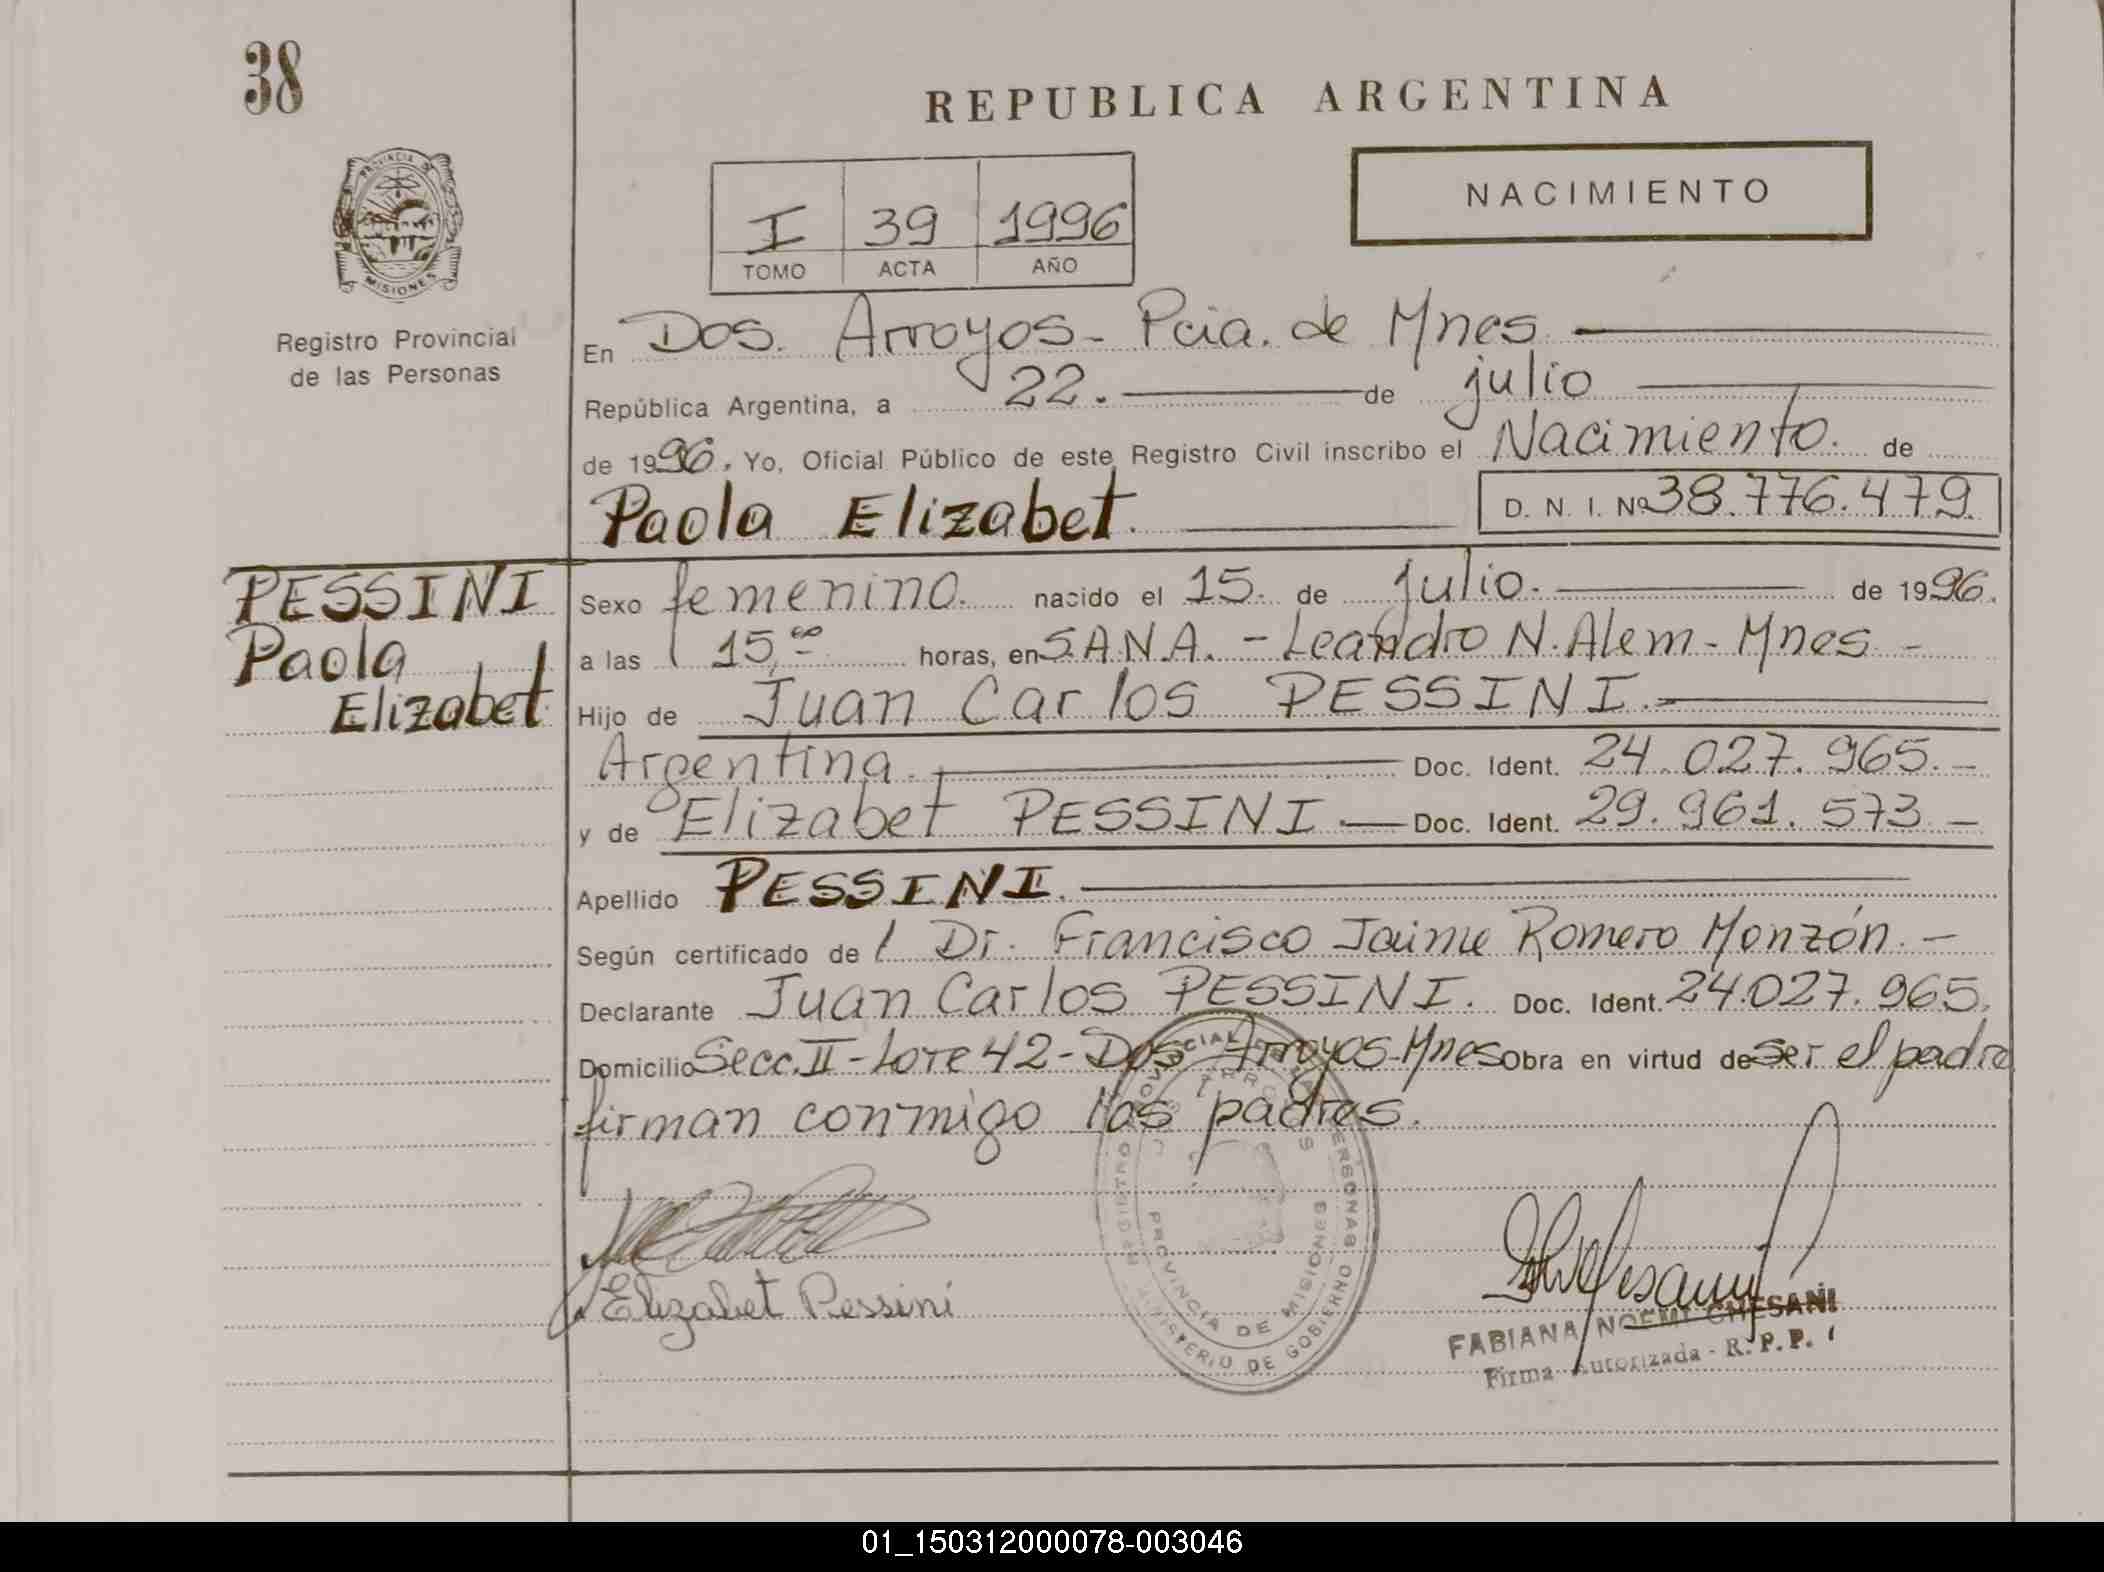 38
REPUBLICA ARGENTINA
PROVINCIA DE
MISIONES
Registro Provincial
de las Personas
I 39 1996
TOMO ACTA AÑO
NACIMIENTO
En Dos Arroyos - Pcia. de Mnes
República Argentina, a 22. de julio
de 1996. Yo, Oficial Público de este Registro Civil inscribo el Nacimiento. de
Paola Elizabet. D. N. I. Nº 38.776.479.
PESSINI
Paola
Elizabet
Sexo femenino. nacido el 15. de julio. de 1996.
a las 15,00 horas, en S.A.N.A. - Leandro N. Alem - Mnes -
Hijo de Juan Carlos PESSINI.
Argentina. Doc. Ident. 24.027.965. -
y de Elizabet PESSINI. Doc. Ident. 29.961.573 -
Apellido PESSINI.
Según certificado de l Dr. Francisco Jaime Romero Monzón. -
Declarante Juan Carlos PESSINI. Doc. Ident. 24.027.965.
Domicilio Secc. II - Lote 42 - Dos Arroyos - Mnes Obra en virtud de ser el padre
firman conmigo los padres.
REGISTRO PROVINCIAL DE LAS PERSONAS
MINISTERIO DE GOBIERNO
DOS ARROYOS
PROVINCIA DE MISIONES
Elizabet Pessini
FABIANA NOEMI CHESANI
Firma Autorizada - R. P. P.
01_150312000078-003046